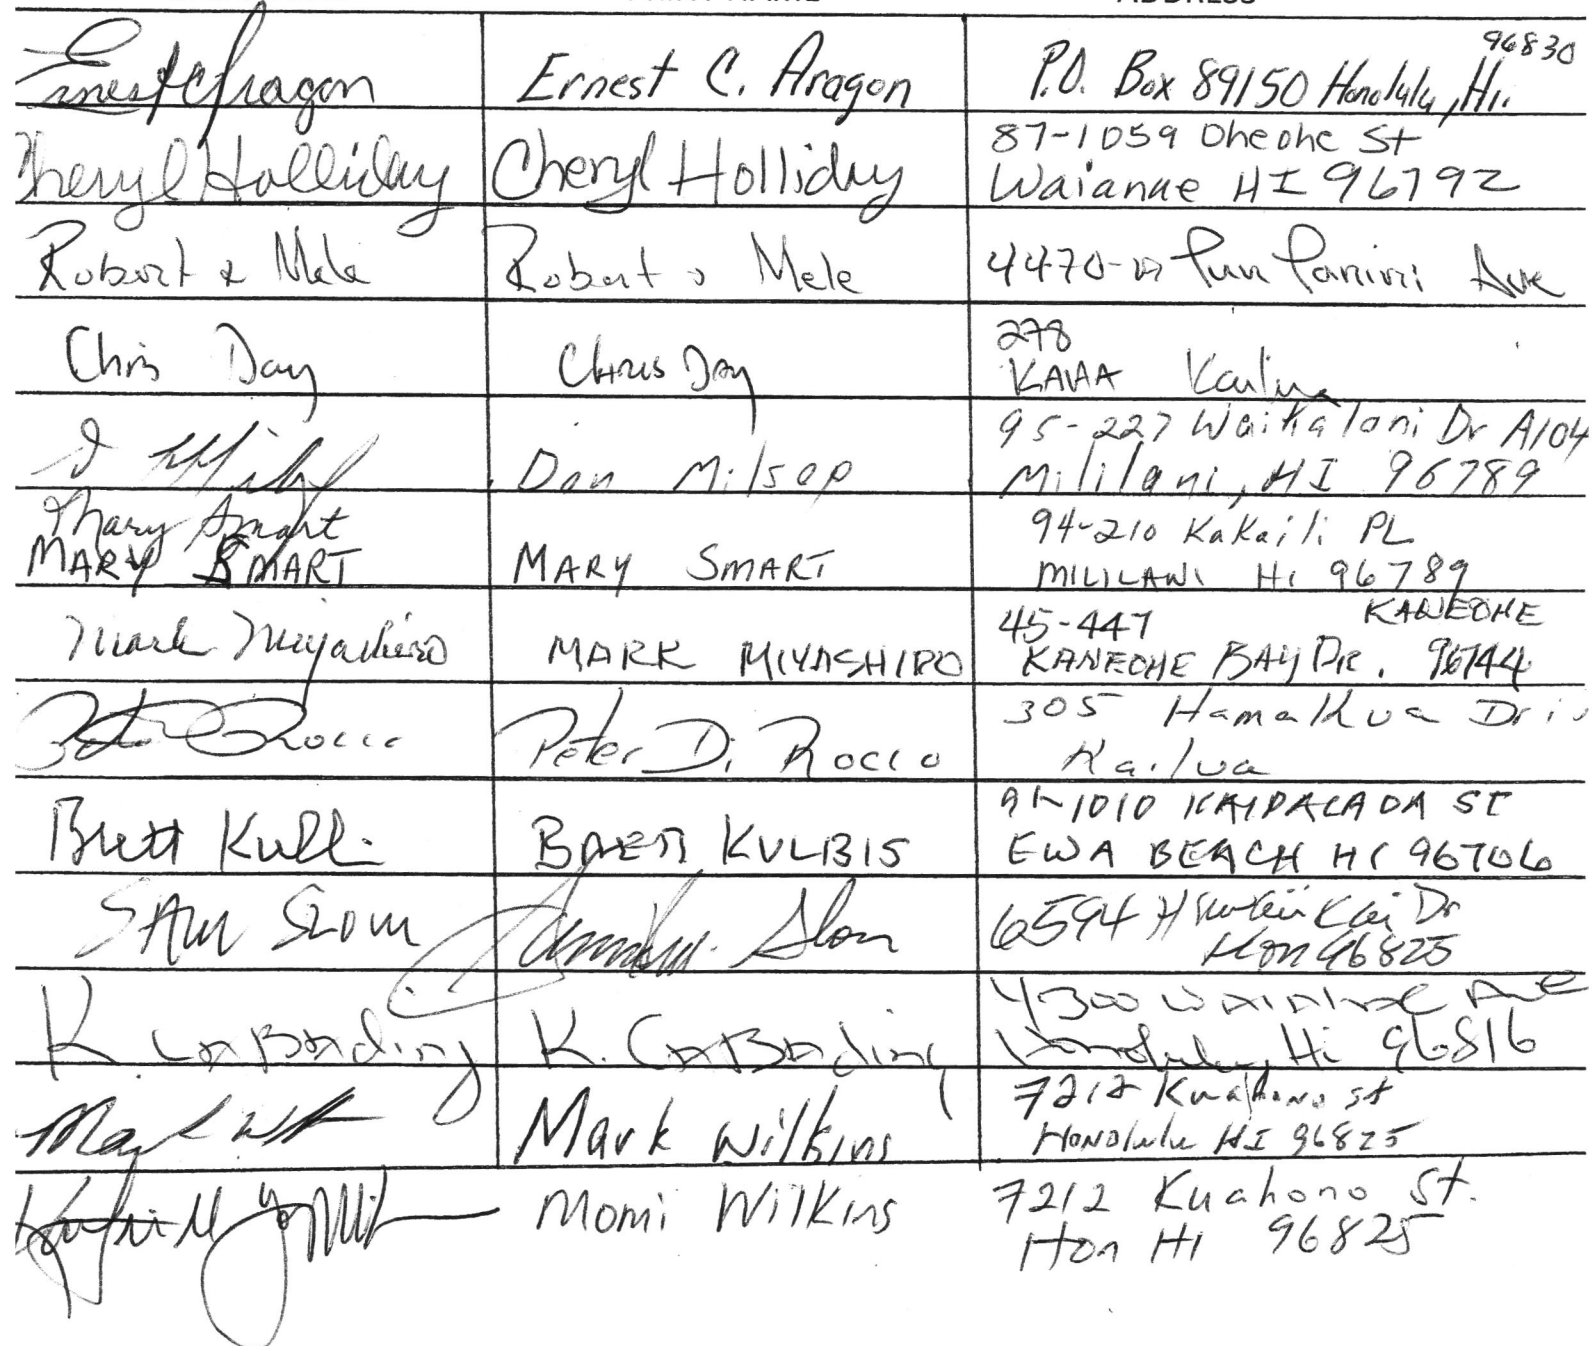 ADDRESS
Ernest C Aragon Ernest C. Aragon P.O. Box 89150 Honolulu, Hi. 96830
Cheryl Holliday Cheryl Holliday 87-1059 Oheohe St
Waianae HI 96792
Robert & Mele Robert & Mele 4470-A Puu Panini Ave
Chris Day Chris Day 278
Kailua
Don Milsap 95-227 Waikalani Dr A104
Mililani, HI 96789
Mary Smart 94-210 Kakaili PL
MARY SMART MARY SMART MILILANI Hi 96789
Mark Miyashiro MARK MIYASHIRO 45-447 KANEOHE
KANEOHE BAY DR. 96744
Peter Di Rocco 305 Hamakua
Kailua
Brett BRETT KULBIS 91-1010
EWA BEACH HI 96706
SAM SLOM Slom 6594 Kai Dr
Hon 96825
K. CaBBading K. CaBBading 4300 Waialae Ave
Honolulu, Hi 96816
Mark Mark Wilkins 7212 Kuahono st
Honolulu HI 96825
Momi Wilkins 7212 Kuahono St.
Hon HI 96825